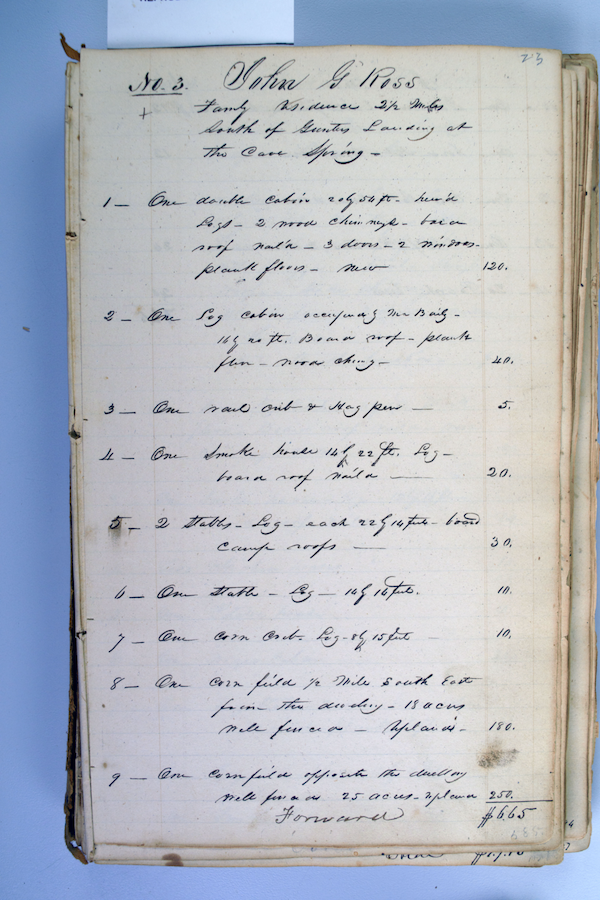 23
No. 3. John G Ross
Family residence 2 1/2 Miles
South of Gunters Landing at
the Cave Spring -
1 - One double cabin 20 by 54 ft - hew'd
Logs - 2 wood chimneys - board
roof nail'd - 3 doors - 2 windows -
plank floors - new 120.
2 - One Log cabin occupied by Mr Baily -
16 by 20 ft. Board roof - plank
floor - wood chimy - 40.
3 - One rail crib & Hog pen - 5.
4 - One Smoke house 14 by 22 ft. Log -
board roof nail'd - 20.
5 - 2 Stables - Log - each 22 by 14 feet - board
camp roofs - 30.
6 - One Stable - Log - 14 by 16 feet. 10.
7 - One corn crib. Log - 8 by 15 feet - 10.
8 - One corn field 1/2 Mile South East
from the dwelling - 18 acres
well fenced - Upland - 180.
9 - One cornfield opposite the dwelling
well fenced 25 acres - upland 250.
Forward $665